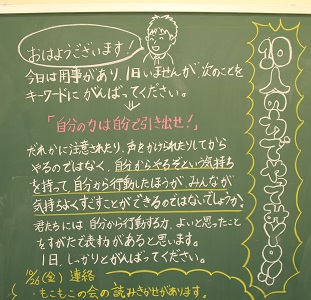 おはようございます!
今日は用事があり、1日いませんが、次のことを
キーワードに がんばってください。
「自分の力は自分で引き出せ!」
だれかに注意されたり、声をかけられたりしてから
やるのではなく、自分からやるぞという気持ち
を持って、自分から行動したほうが、みんなが
気持ちよくすごすことができるのではないでしょうか。
君たちには、自分から行動する力、よいと思ったこと
をすがたで表す力があると思います。
1日、しっかりとがんばってください。
10/26(金) 連絡
・もこもこの会の読みきかせがあります。